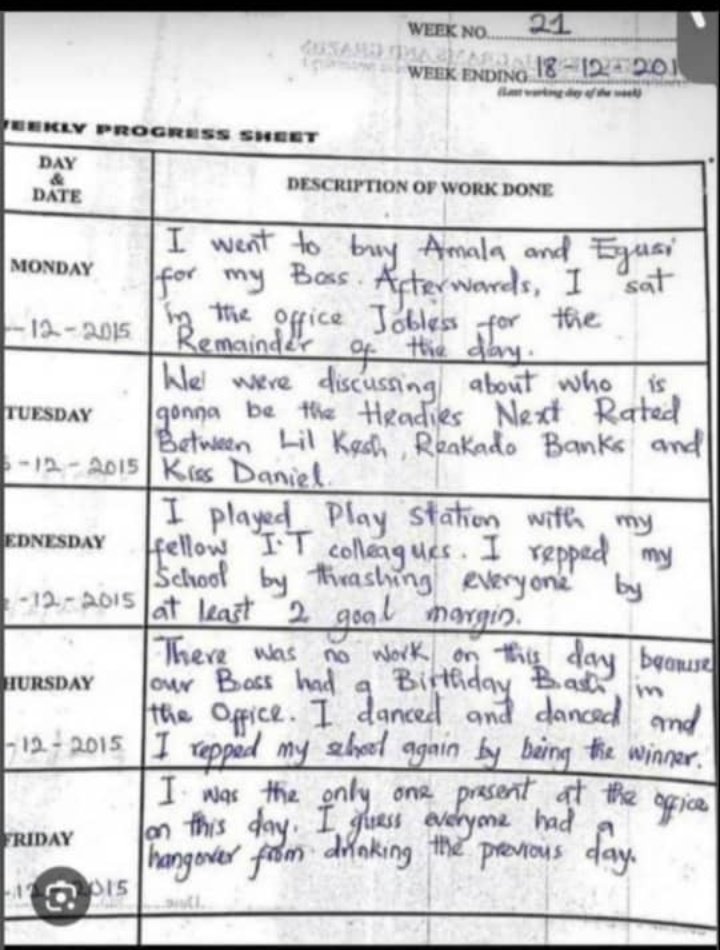 WEEK NO. 21
WEEK ENDING 18-12-201
(Last working day of the week)
WEEKLY PROGRESS SHEET
DAY & DATE
DESCRIPTION OF WORK DONE
MONDAY
-12-2015
I went to buy Amala and Egusi
for my Boss. Afterwards, I sat
in the office Jobless for the
Remainder of the day.
TUESDAY
-12-2015
We were discussing about who is
gonna be the Headies Next Rated
Between Lil Kesh, Reakado Banks and
Kiss Daniel.
EDNESDAY
-12-2015
I played Play Station with my
fellow I.T colleagues. I repped my
School by thrashing everyone by
at least 2 goal margin.
HURSDAY
-12-2015
There was no work on this day because
our Boss had a Birthday Bash in
the Office. I danced and danced and
I repped my school again by being the winner.
FRIDAY
-12-2015
I was the only one present at the office
on this day. I guess everyone had a
hangover from drinking the previous day.